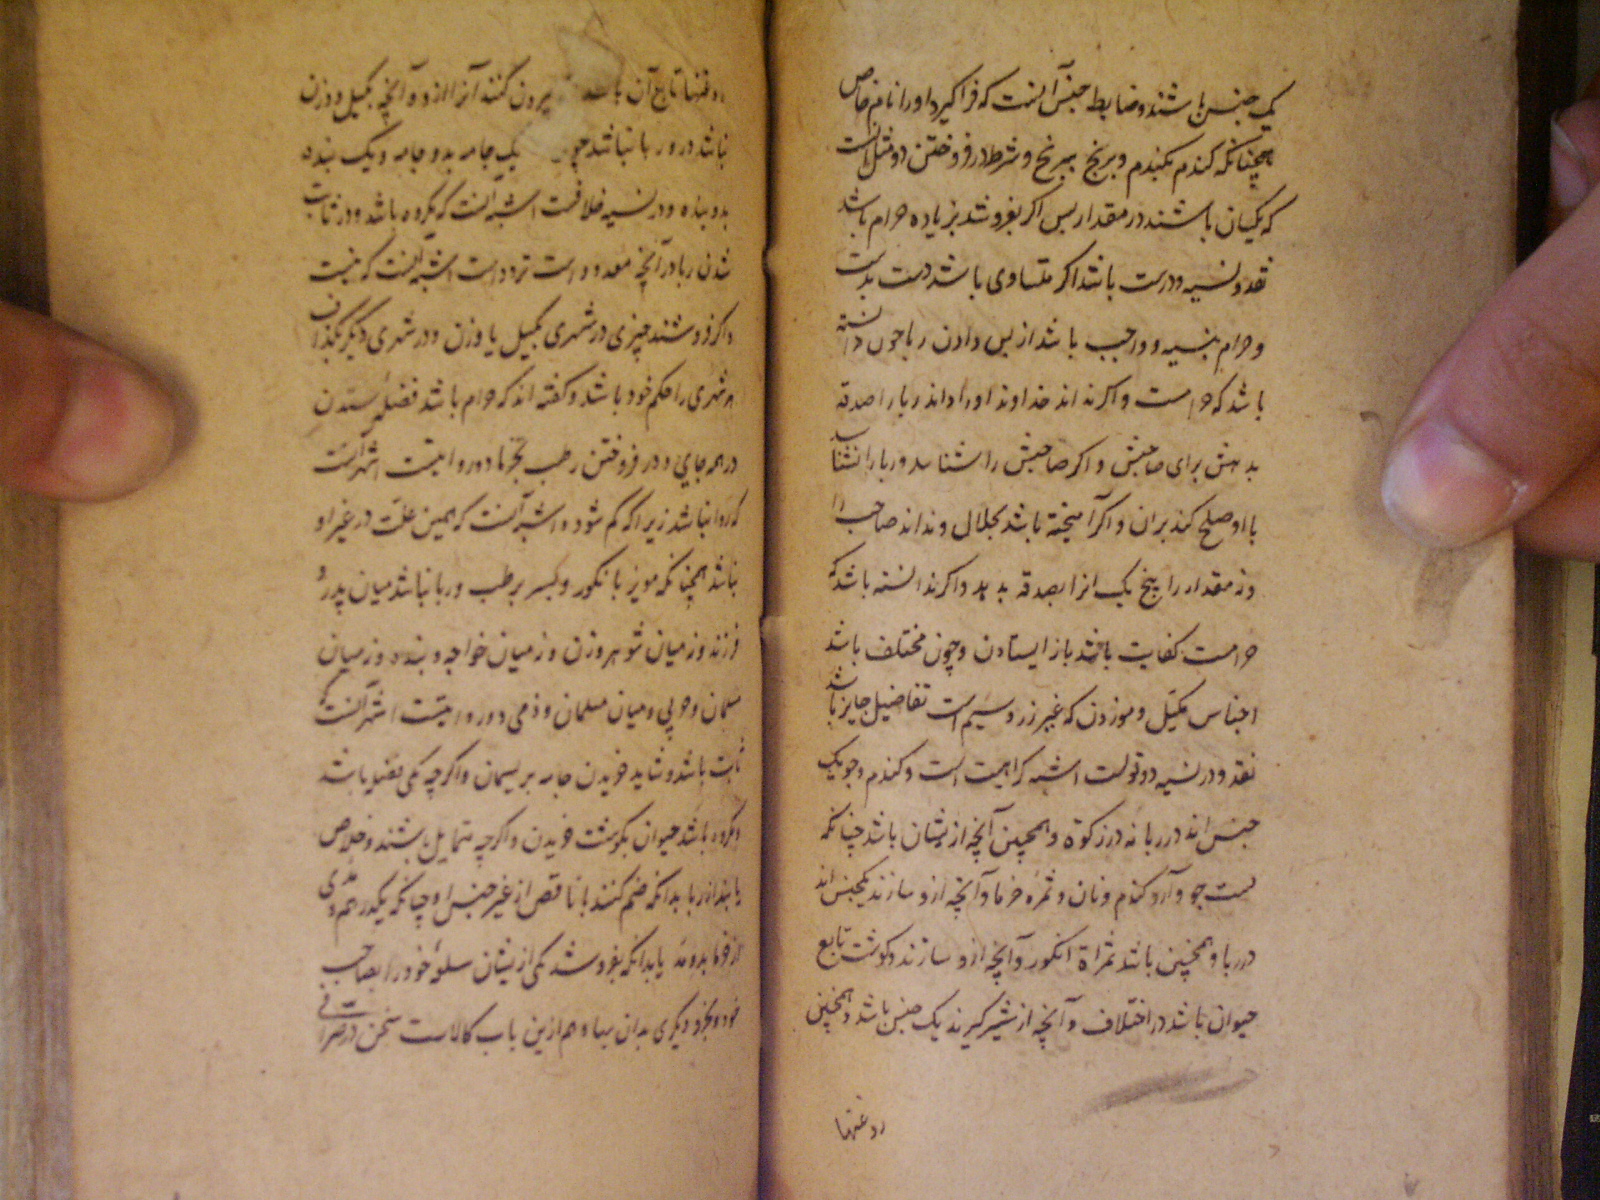 یک جنس باشند و ضابط جنس آنست که فراگیرد او را نام خاص
همچنانکه کندم بکندم و برنج ببرنج و شرط در فروختن دو مثل آنست
که یکسان باشند در مقدار پس اکر بفروشد بزیاده حرام باشد
نقد و نسیه و درست باشد اکر متساوی باشد دست بدست
و حرام بنسیه و واجب باشد از پس دادن ربا چون دانسته
باشد که حرامست و اکر نداند خداوند او را و داند ربا را صدقه
بدهش برای صاحبش و اکر صاحبش را شناسد و ربا را نشناسد
با او صلح کند بران و اکر آمیخته باشد بحلال و نداند صاحب را
و نه مقدار را پنج یک انرا بصدقه بدهد و اکر ندانسته باشد که
حرامست کفایت باشد باز ایستادن و چون مختلف باشد
اجناس مکیل و موزون که غیر زر و سیم است تفاضل جایز باشد
نقد و در نسیه دو قولست اشبه کراهیت است و کندم و جو یک
جنس اند در ربا نه در زکوة و همچنین آنچه ازیشان باشد چنانکه
پست جو و آرد کندم و نان و ثمرۀ خرما و آنچه ازو سازند یکجنس اند
در ربا و همچنین باشد ثمراة انکور و آنچه ازو سازند و کوشت تابع
حیوان باشد در اختلاف و آنچه از شیر کیرند یک جنس باشد و همچنین
روغنها
روغنها تابع آن باشد بیرون کنند آنرا ازو و آنچه بکیل و وزن
نباشد درو ربا نباشد چون یک جامه بدو جامه و یک بنده
بدو بنده و در نسیه خلافست اشبه آنست که مکروه باشد و در ثابت
شدن ربا در آنچه معدود است تردد است اشبه آنست که نیست
و اکر فروشند چیزی در شهری بکیل یا وزن و در شهری دیکر بکذاف
هر شهری را حکم خود باشد و کفته اند که حرام باشد فضل ستدن
در همه جایی و در فروختن رطب بخرما دو روایتست اشهر آنست
که روا نباشد زیرا که کم شود و اشبه آنست که همین علت در غیر او
نباشد همچنانکه مویز بانکور و بسر برطب و ربا نباشد میان پدر و
فرزند و نه میان شوهر و زن و نه میان خواجه و بنده و نه میان
مسلمان و حربی و میان مسلمان و ذمی دو روایتست اشهر آنست که
ثابت باشد و شاید خریدن جامه بریسمان و اکرچه یکی بفضل باشد
و مکروه باشد حیوان بکوشت خریدن و اکرچه متماثل باشند و خلاص
یابند از ربا بدانکه ضم کنند با ناقص از غیر جنس او چنانکه یکدرهم و مدی
از خرما بدو مد یا بدانکه بفروشد یکی ازیشان سلعۀ خود را بصاحب
خود و بخرد دیکری بدان بها و هم ازین باب کالاست سخن در صرافی